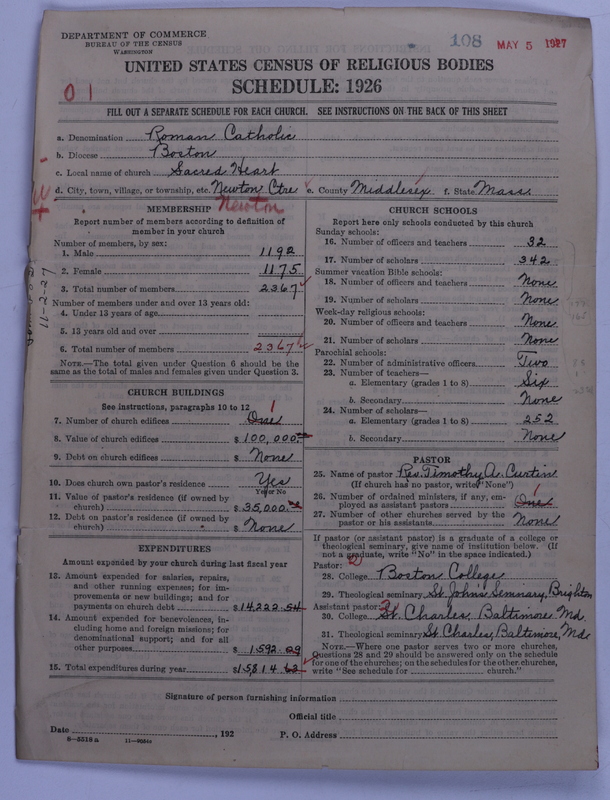 DEPARTMENT OF COMMERCE
BUREAU OF THE CENSUS
WASHINGTON
108
MAY 5 1927
UNITED STATES CENSUS OF RELIGIOUS BODIES
SCHEDULE: 1926
01
FILL OUT A SEPARATE SCHEDULE FOR EACH CHURCH. SEE INSTRUCTIONS ON THE BACK OF THIS SHEET
a. Denomination Roman Catholic
b. Diocese Boston
c. Local name of church Sacred Heart
d. City, town, village, or township, etc. Newton Ctre e. County Middlesex f. State Mass.
Newton
MEMBERSHIP
Report number of members according to definition of
member in your church
Number of members, by sex:
1. Male 1192
2. Female 1175
3. Total number of members 2367
Number of members under and over 13 years old:
4. Under 13 years of age
5. 13 years old and over
6. Total number of members 2367
NOTE.—The total given under Question 6 should be the
same as the total of males and females given under Question 3.
11-2-27
CHURCH BUILDINGS
See instructions, paragraphs 10 to 12
7. Number of church edifices One 1
8. Value of church edifices $100,000.
9. Debt on church edifices $ None
10. Does church own pastor's residence Yes
Yes or No
11. Value of pastor's residence (if owned by
church) $35,000.
12. Debt on pastor's residence (if owned by
church) $ None
EXPENDITURES
Amount expended by your church during last fiscal year
13. Amount expended for salaries, repairs,
and other running expenses; for im-
provements or new buildings; and for
payments on church debt $14,222.54
14. Amount expended for benevolences, in-
cluding home and foreign missions; for
denominational support; and for all
other purposes $1.592.29
15. Total expenditures during year $15814
CHURCH SCHOOLS
Report here only schools conducted by this church
Sunday schools:
16. Number of officers and teachers 32
17. Number of scholars 342
Summer vacation Bible schools:
18. Number of officers and teachers None
19. Number of scholars None
Week-day religious schools:
20. Number of officers and teachers None
21. Number of scholars None
Parochial schools:
22. Number of administrative officers Two
23. Number of teachers—
a. Elementary (grades 1 to 8) Six
b. Secondary None
24. Number of scholars—
a. Elementary (grades 1 to 8) 252
b. Secondary None
PASTOR
25. Name of pastor Rev. Timothy A. Curtin
(If church has no pastor, write "None")
26. Number of ordained ministers, if any, em-
ployed as assistant pastors One 1
27. Number of other churches served by the
pastor or his assistants None
If pastor (or assistant pastor) is a graduate of a college or
theological seminary, give name of institution below. (If
not a graduate, write "No" in the space indicated.)
Pastor:
28. College Boston College
29. Theological seminary St. Johns Seminary, Brighton
Assistant pastor:
30. College St. Charles, Baltimore Md.
31. Theological seminary St. Charles, Baltimore, Md.
NOTE.—Where one pastor serves two or more churches,
Questions 28 and 29 should be answered only on the schedule
for one of the churches; on the schedules for the other churches,
write "See schedule for church."
Signature of person furnishing information
Official title
Date , 192 P. O. Address
8—5518 a